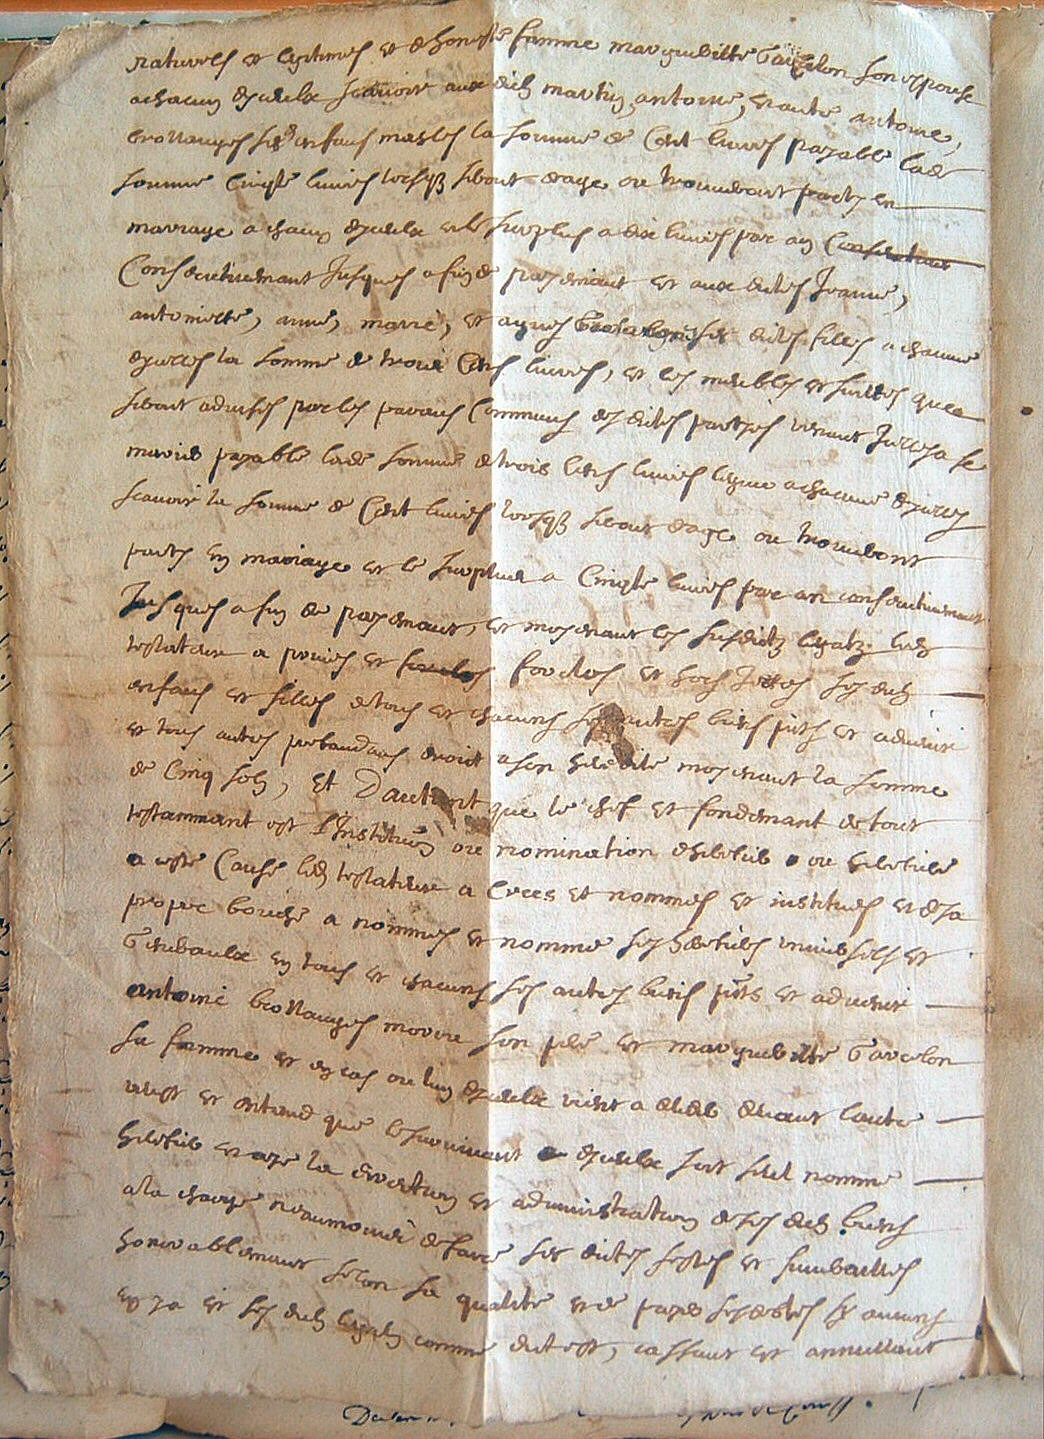 naturels et legitimes et de honeste femme margueritte Gavelon son espouse
a chacun d'yceulx scavoir aux dictz martin, antoine, et autre antoine,
ses enfans masles la somme de Cent livres payable lade
somme Cinqte livres lorsqz seront d'age ou trouveront party en
mariage a chacun d'yceulx et le surplus a dix livres par an
Consecutivemant Jusques a fin de payemant et aux dites Jeanne,
antoinette, anne, marie, et agnes ses dites filles a chacune
d'ycelles la somme de trois Cens livres, et les meubles et que
seront advises par les parans Communs des dites parties venant Jcelles a se
marier payable lade somme de trois Cens livres legue a chacune d'ycelles
scavoir la somme de Cent livres lorsqz seront d'age ou trouveront
party en mariage et le surplus a Cinqte livres par an consecutivemant
Jusques a fin de payemant, et moyenant les susditz legatz led
testateur a prives et forclos et hors Jettes ses ditz
enfans et filles de tous et chacuns ses autres biens pnts et advenir
et tous autres pretandans droit a son heredite moyenant la somme
de Cinq solz, Et D'autant que le chef et fondemant de tout
testammant est l'Institution ou nomination d'heritier ou heritiere
a ceste Cause led testateur a Crees et nommes et institues et de sa
propre bouche a nommes et nomme ses heritiers universelz et
en tous et chacuns ses autres biens pnts et advenir
antoine son pere et marguerite Gavelon
sa femme et en cas ou l'un d'yceulx vient a deceder devant l'autre
veust et entend que le survivant d'yceulx soit seul nomme
heritier et aye la direction et administration de ses ditz biens
a la charge neaumoins de faire ses dictes
honorablemant selon sa qualite et de payer ses debtes sy aucuns
en y a et ses ditz legatz comme dit est, cassant et annullant